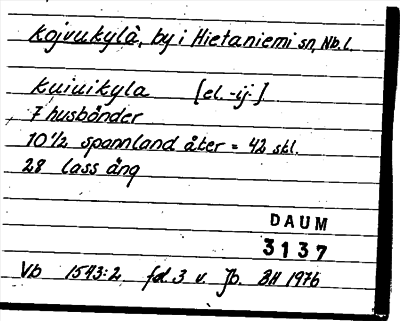 Koivukylä, by i Hietaniemi sn, Nb. l.
kuiuikyla [el. -ij-]
7 husbönder
10 1/2 spannland åker = 42 skl.
28 lass äng
DAUM
3137
Vb 1543:2 fol 3 v. Jb. BH 1976